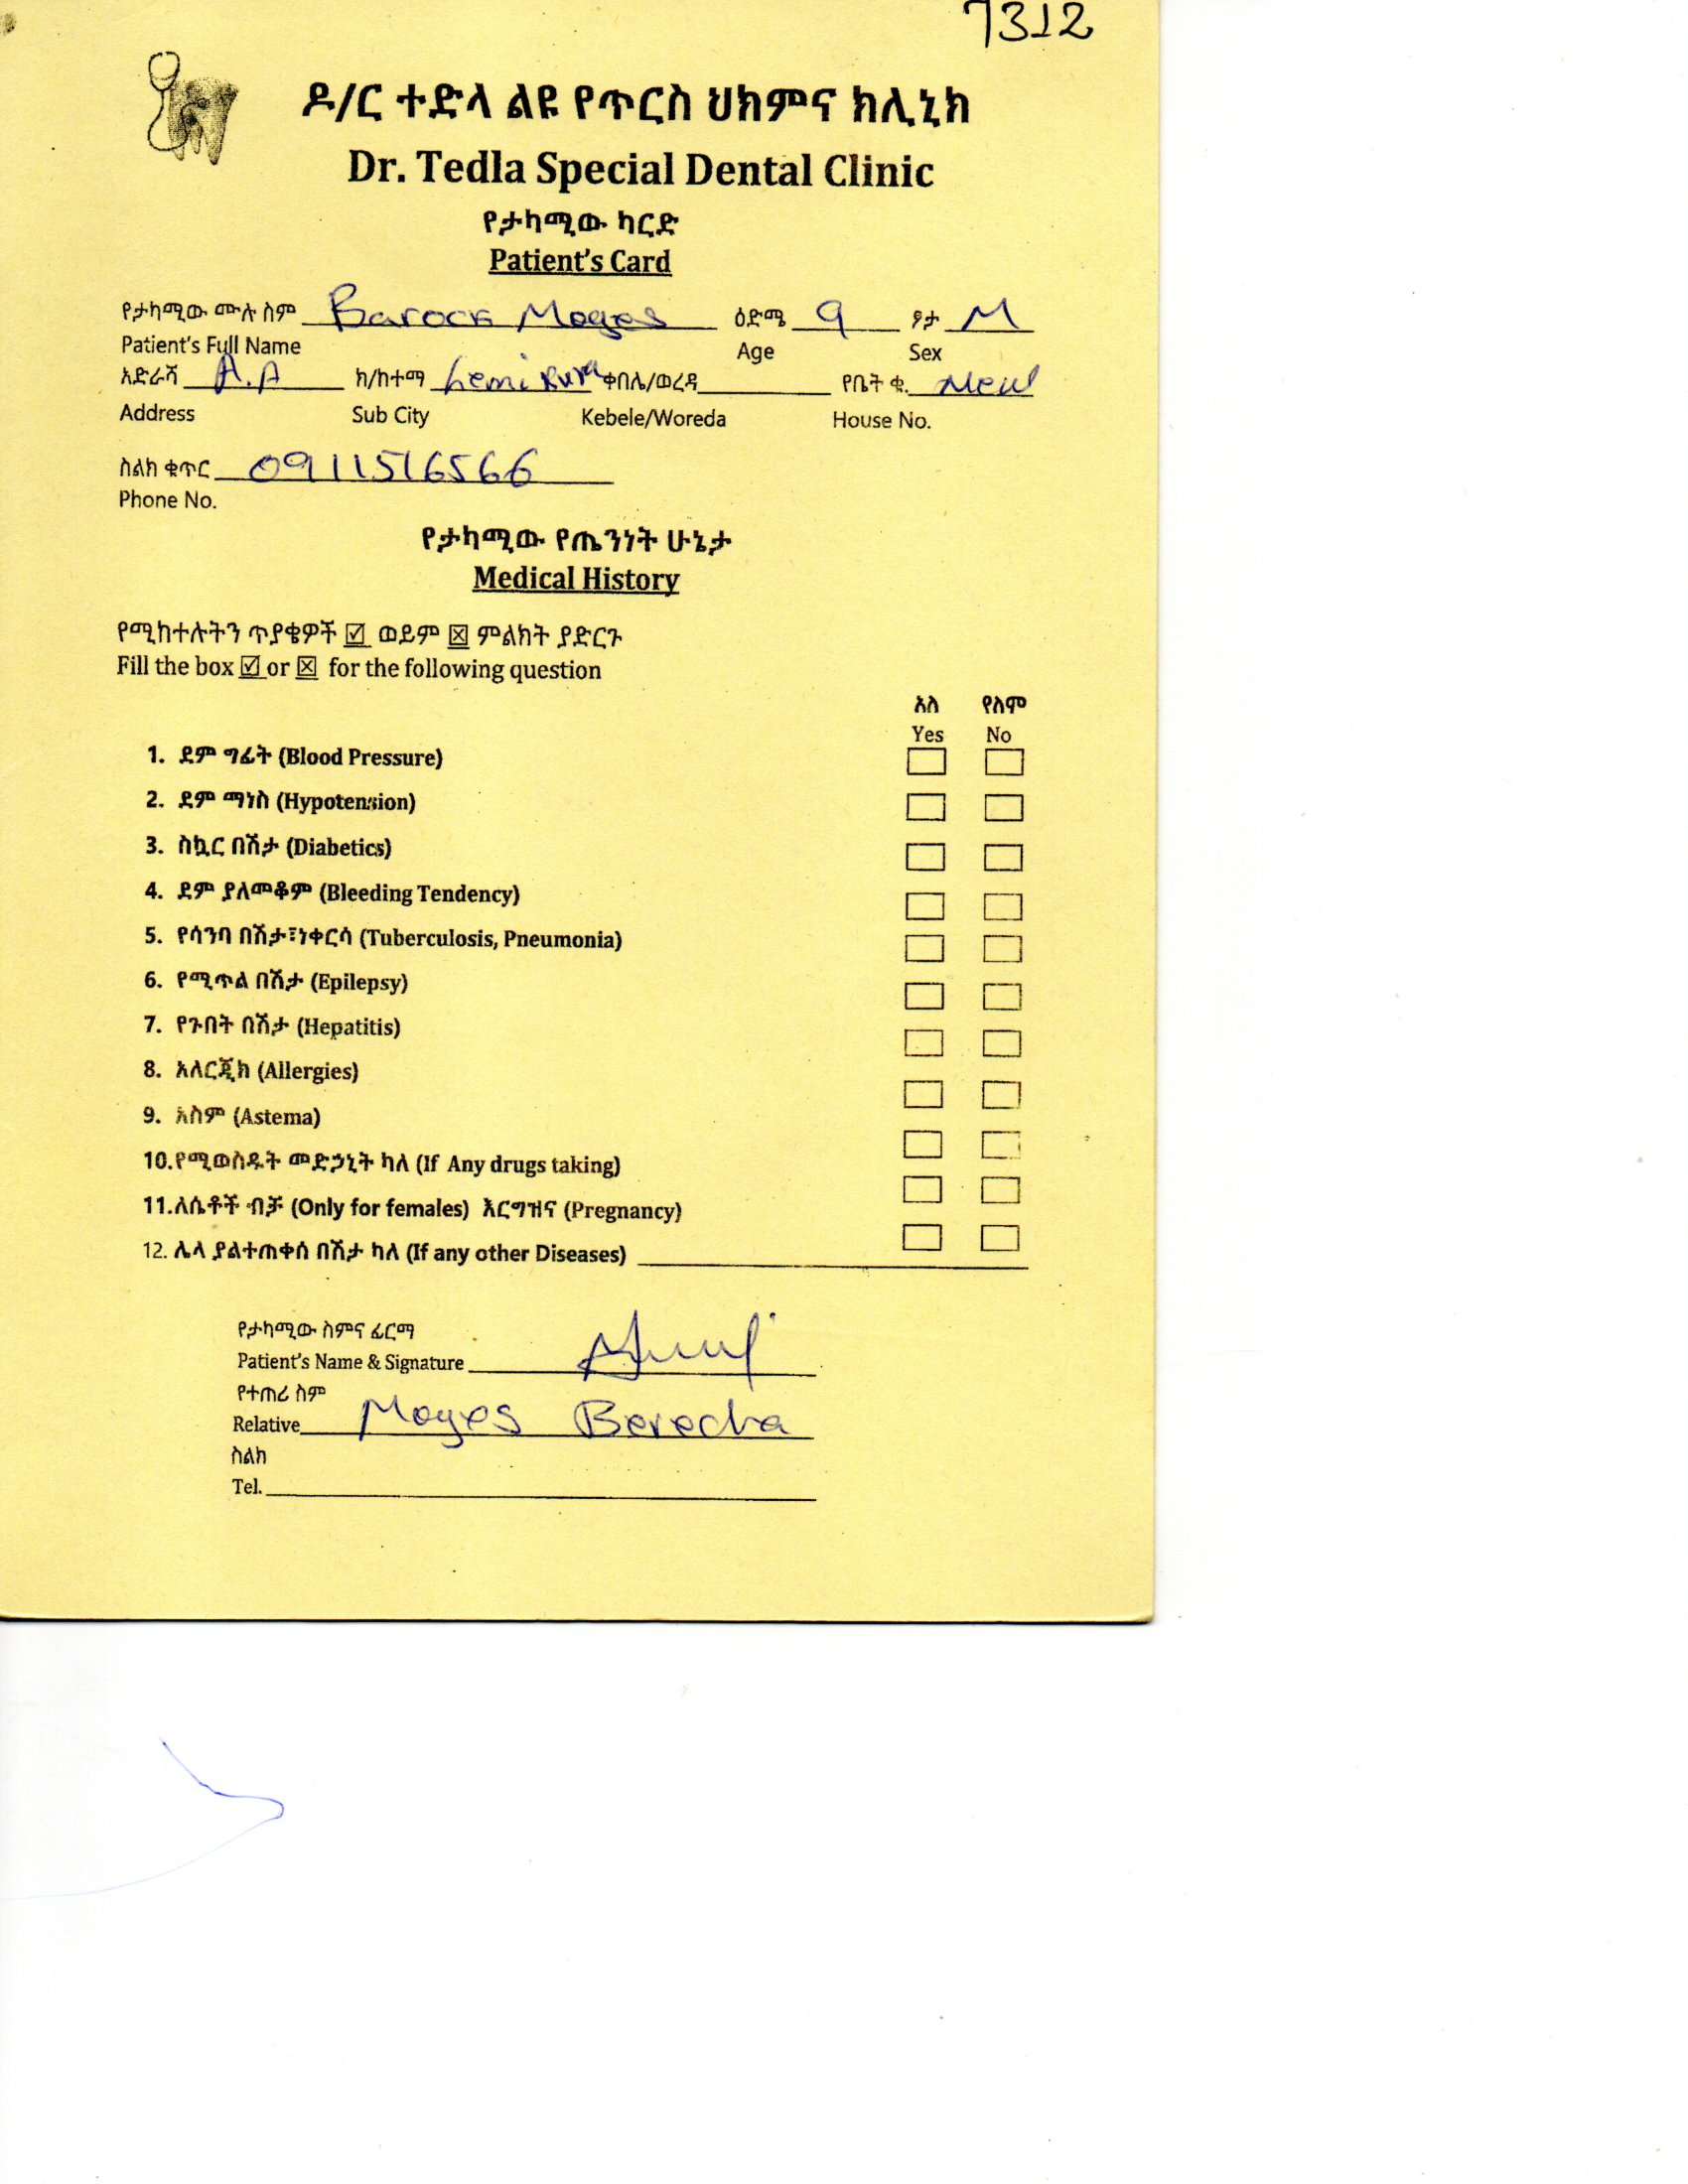 7312
ዶ/ር ተድላ ልዩ የጥርስ ህክምና ክሊኒክ
Dr. Tedla Special Dental Clinic
የታካሚው ካርድ
Patient's Card
የታካሚው ሙሉ ስም Barock Moges ዕድሜ 9 ፆታ M
Patient's Full Name Age Sex
አድራሻ A.A ክ/ከተማ Lemi Kura ቀበሌ/ወረዳ የቤት ቁ. New
Address Sub City Kebele/Woreda House No.
ስልክ ቁጥር 0911516566
Phone No.
የታካሚው የጤንነት ሁኔታ
Medical History
የሚከተሉትን ጥያቄዎች ☑ ወይም ☒ ምልክት ያድርጉ
Fill the box ☑ or ☒ for the following question
አለ የለም
Yes No
1. ደም ግፊት (Blood Pressure)
2. ደም ማነስ (Hypotension)
3. ስኳር በሽታ (Diabetics)
4. ደም ያለመቆም (Bleeding Tendency)
5. የሳንባ በሽታ፣ነቀርሳ (Tuberculosis, Pneumonia)
6. የሚጥል በሽታ (Epilepsy)
7. የጉበት በሽታ (Hepatitis)
8. አለርጂክ (Allergies)
9. አስም (Astema)
10.የሚወስዱት መድኃኒት ካለ (If Any drugs taking)
11.ለሴቶች ብቻ (Only for females) እርግዝና (Pregnancy)
12. ሌላ ያልተጠቀሰ በሽታ ካለ (If any other Diseases)
የታካሚው ስምና ፊርማ
Patient's Name & Signature
የተጠሪ ስም
Relative Moges Berecha
ስልክ
Tel.